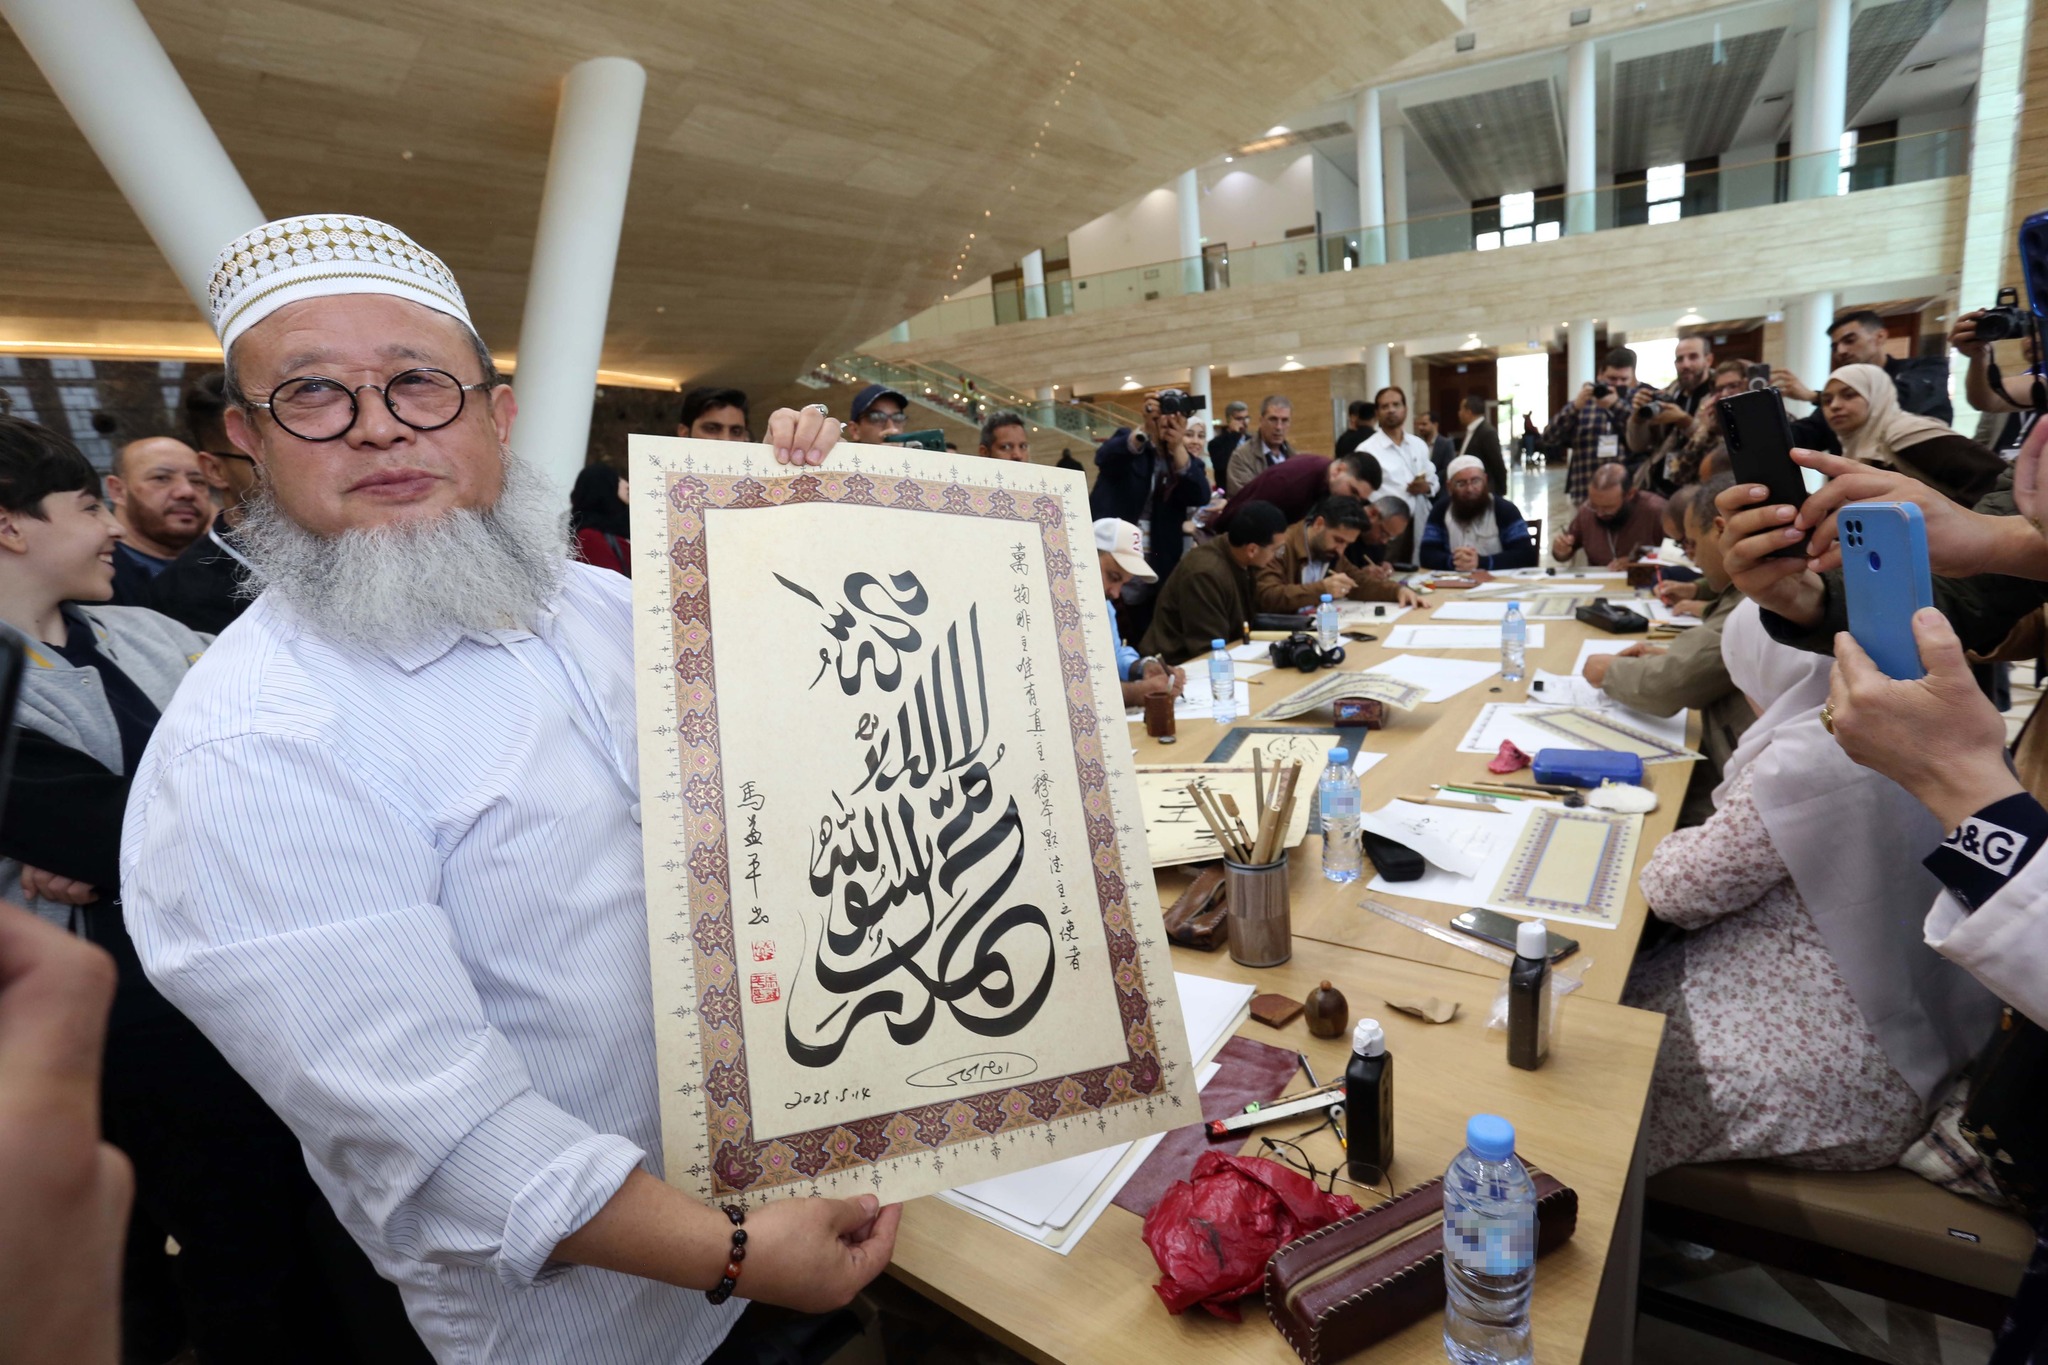 萬物非主唯有真主穆罕默德主之使者
لا إله إلا الله
محمد رسول الله
馬益平书
2025.5.14
D&G